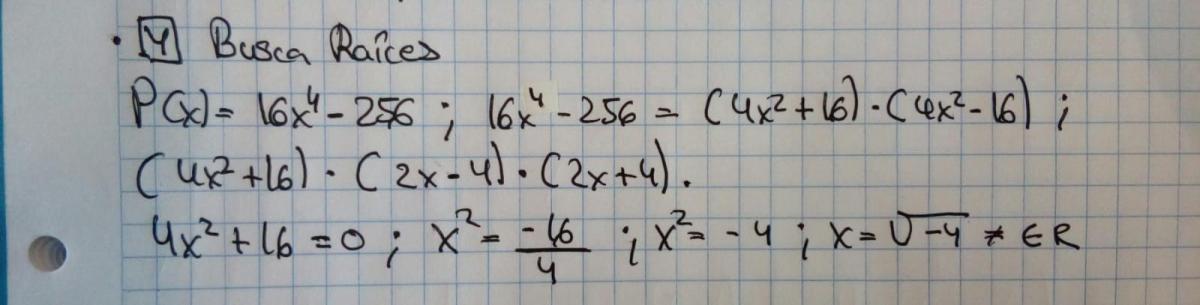 · 4 Busca Raíces
P(x) = 16x⁴ - 256 ; 16x⁴ - 256 = (4x² + 16) · (4x² - 16) ;
(4x² + 16) · (2x - 4) · (2x + 4).
4x² + 16 = 0 ; x² = -16/4 ; x² = -4 ; x = √-4 ≠ ∈ R